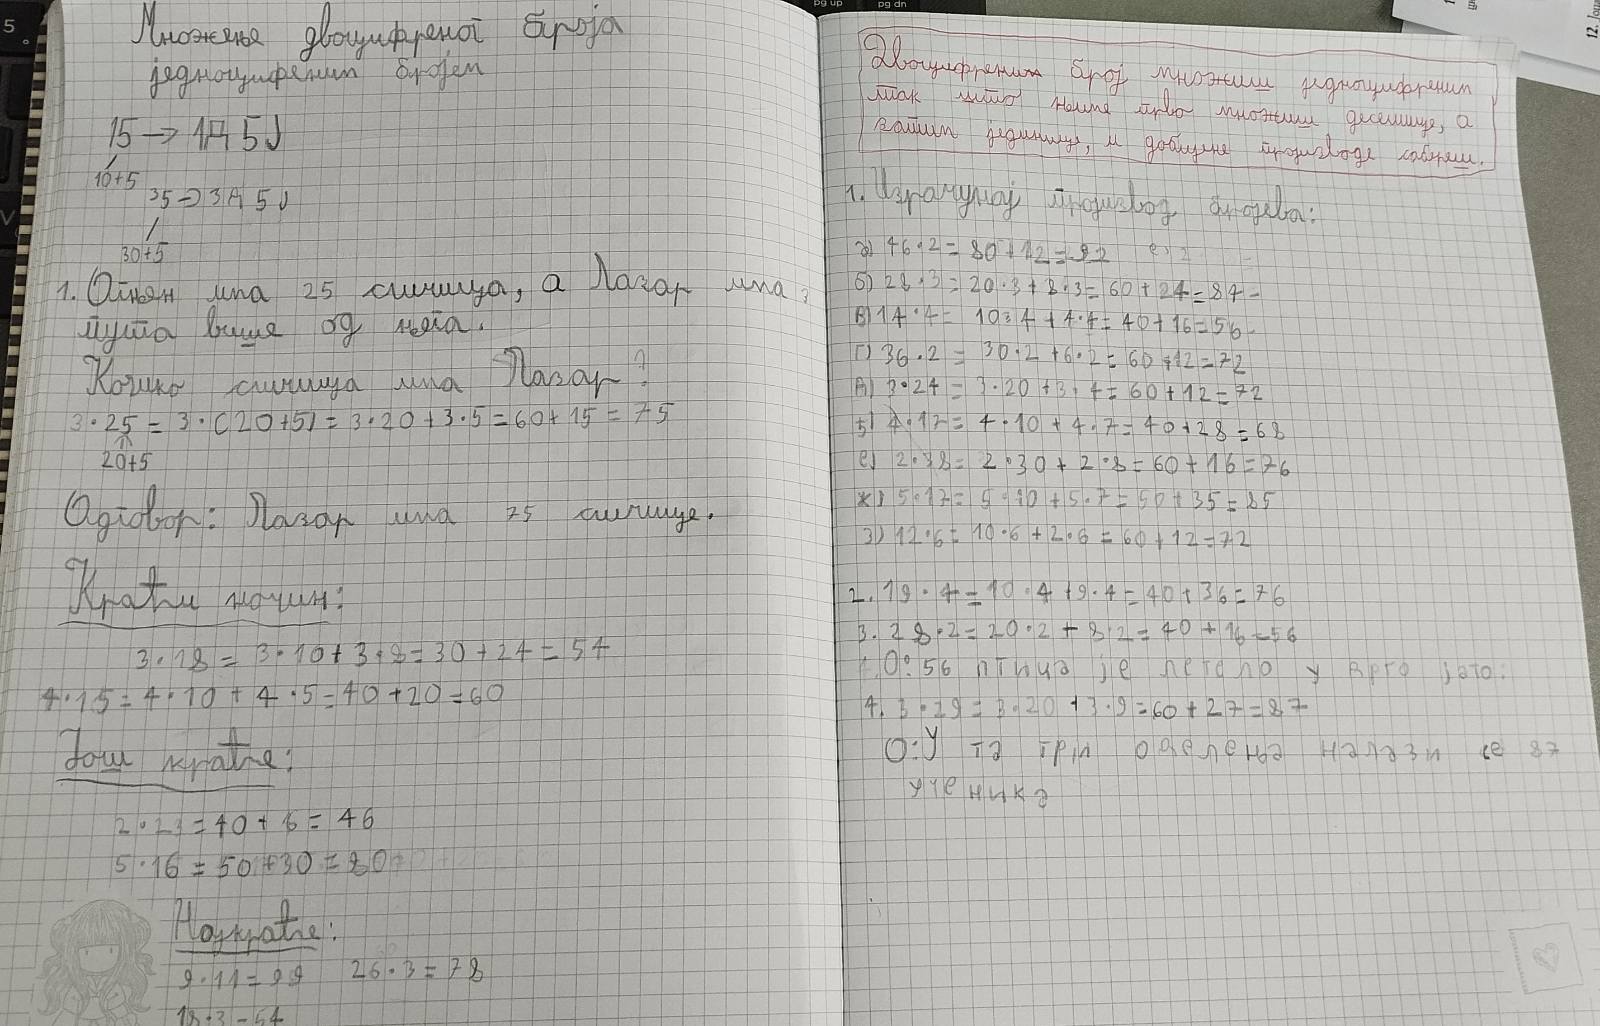 Множење двоцифреног броја
једноцифреним бројем
15 → 1Д 5Ј
10+5
35 → 3Д 5Ј
30+5
1. Огњен има 25 сличица, а Лазар има 3
пута више од њега.
Колико сличица има Лазар?
3·25 = 3·(20+5) = 3·20+3·5=60+15=75
20+5
Одговор: Лазар има 75 сличице.
Краћи начин:
3·18 = 3·10+3·8=30+24=54
4·15=4·10+4·5=40+20=60
Још краће:
2·23=40+6=46
5·16=50+30=80
Најкраће:
9·11=99 26·3=78
18·3=54
Двоцифрени број множиш једноцифреним
тако што њиме прво множиш десетице, а
затим јединице, и добијене производе сабереш.
1. Израчунај производ бројева:
а) 46·2=80+12=92
б) 28·3=20·3+8·3=60+24=84
в) 14·4=10·4+4·4=40+16=56
г) 36·2=30·2+6·2=60+12=72
д) 3·24=3·20+3·4=60+12=72
ђ) 4·17=4·10+4·7=40+28=68
е) 2·38=2·30+2·8=60+16=76
ж) 5·17=5·10+5·7=50+35=85
з) 12·6=10·6+2·6=60+12=72
2. 19·4=10·4+9·4=40+36=76
3. 28·2=20·2+8·2=40+16=56
О: 56 птица је летело у јато.
4. 3·29=3·20+3·9=60+27=87
О: У та три одељења налази се 87
ученика
pg up
pg dn
5
V